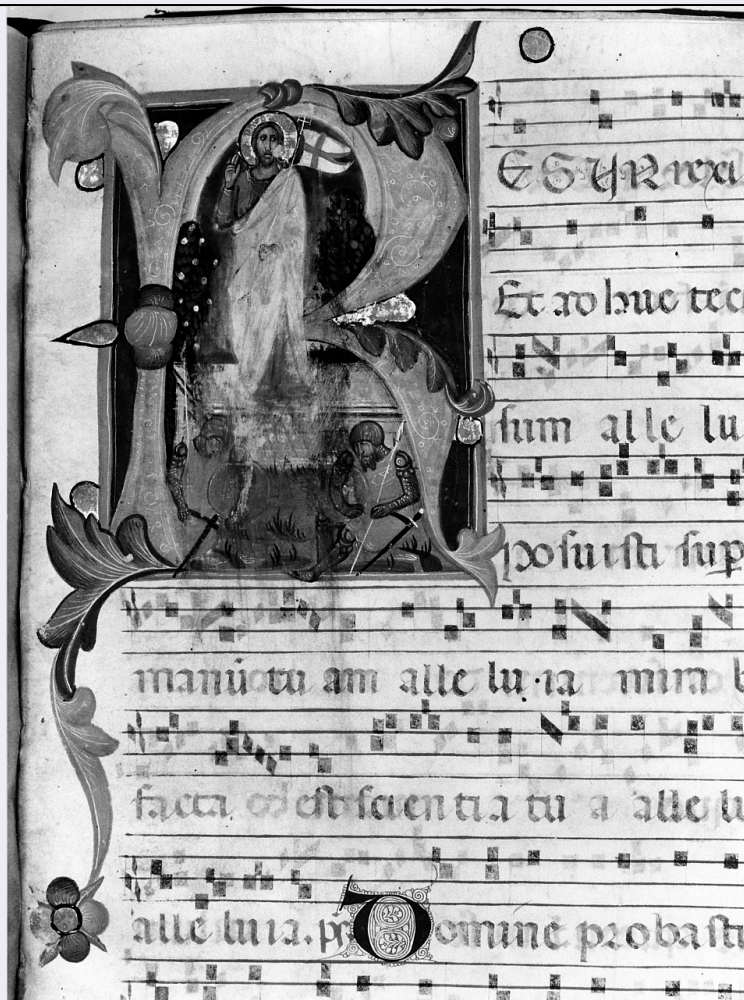 RESURRexi
Et adhuc tec
sum alle lu
posuisti sup
manū tu am alle lu ia mira b
facta est scien ti a tu a alle lu
alle lu ia. ps Domine probasti